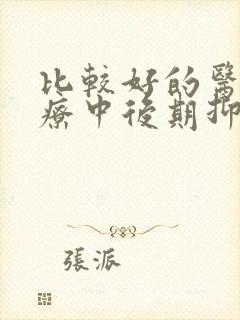 比較好的醫
療中後期抑
張派